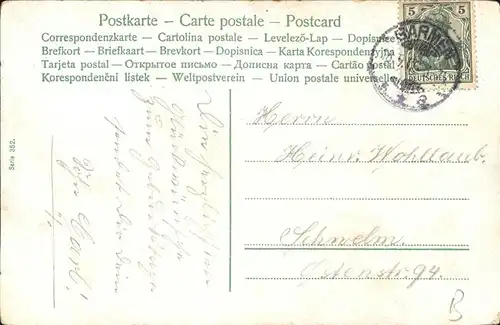 Postkarte – Carte postale – Postcard
Correspondenzkarte – Cartolina postale – Levelező-Lap – Dopisnice
Brefkort – Briefkaart – Brevkort – Dopisnica – Karta Korespondenzyjna
Tarjeta postal – Открытое письмо – Дописна карта – Cartão postal
Korespondenční listek – Weltpostverein – Union postale universelle
5 5
BARMEN
DEUTSCHES REICH
Serie 352.
Die herzlichsten
Glückwünsche
zum Geburtstage
sendet Dir Dein
Carl!
Herrn
Heinr. Wohllaub.
Schwelm.
Ostenstr. 94.
B